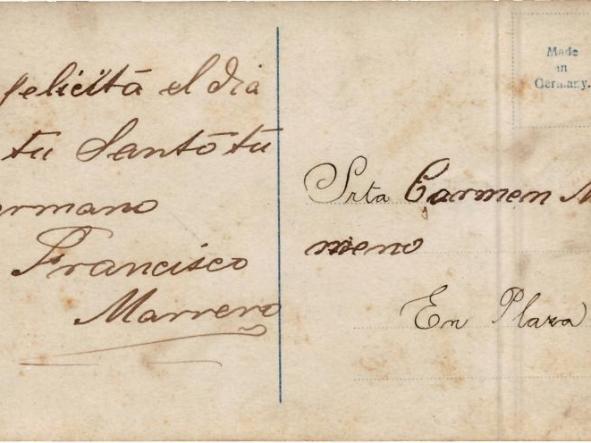 felicitá el dia
tu Santo tu
ermano
Francisco
Marrero
Made
in
Germany.
Srta Carmen M
meno
En Plaza